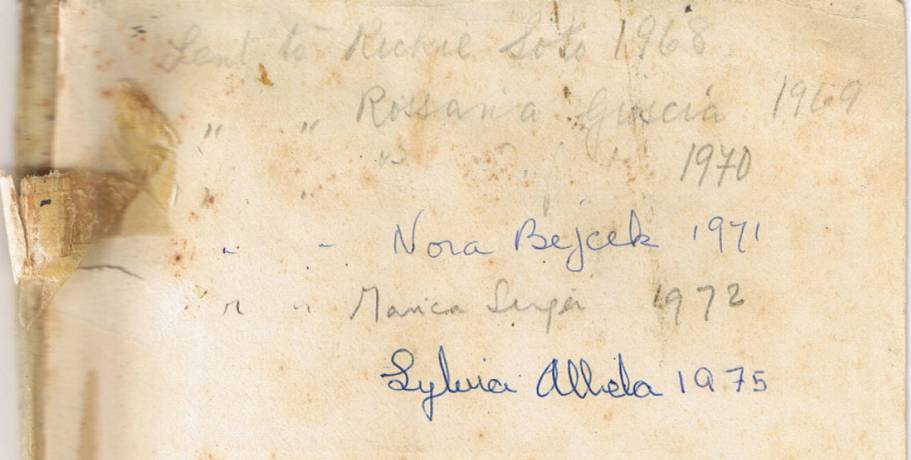 Lent to Rickie Soto 1968
" " Rossana Guscia 1969
" " 1970
" " Nora Bejcek 1971
" " Marica Singer 1972
Sylvia 1975